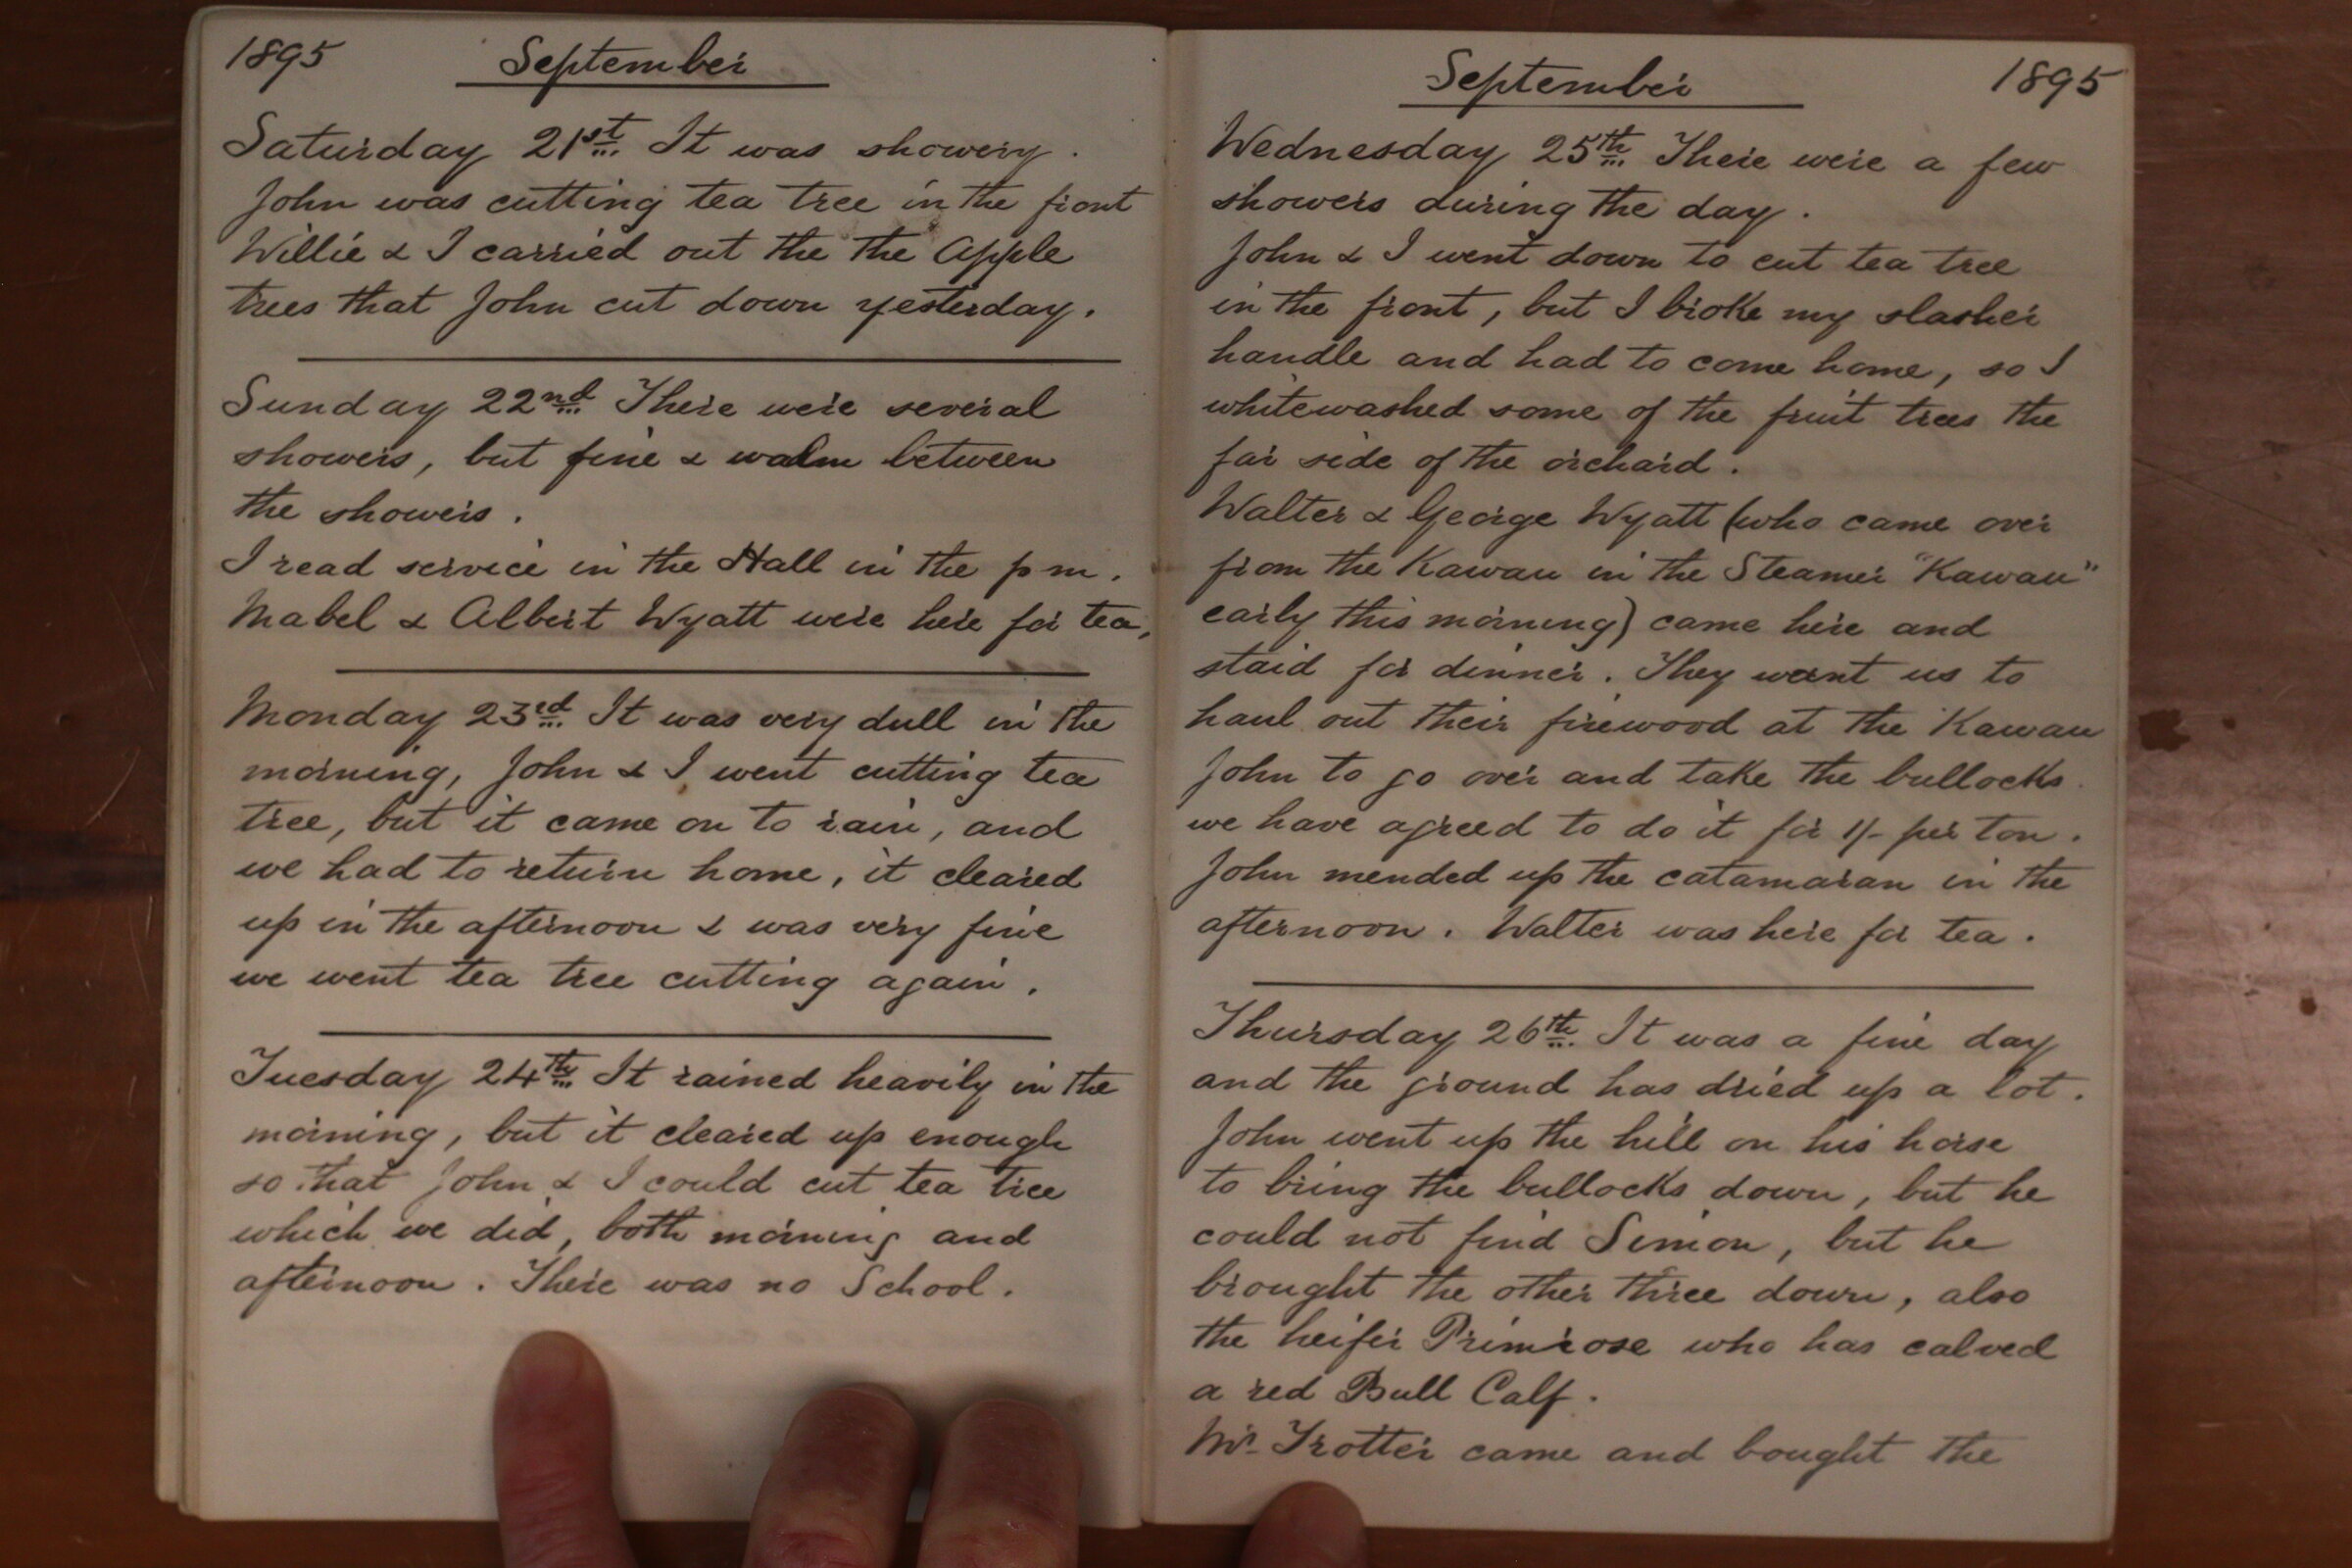 1895 September
Saturday 21st. It was showery.
John was cutting tea tree in the front
Willie & I carried out the the Apple
trees that John cut down yesterday.
Sunday 22nd There were several
showers, but fine & warm between
the showers.
I read service in the Hall in the p m.
Mabel & Albert Wyatt were here for tea,
Monday 23rd. It was very dull in the
morning, John & I went cutting tea
tree, but it came on to rain, and
we had to return home, it cleared
up in the afternoon & was very fine
we went tea tree cutting again.
Tuesday 24th It rained heavily in the
morning, but it cleared up enough
so that John & I could cut tea tree
which we did, both morning and
afternoon. There was no School.
September 1895
Wednesday 25th. There were a few
showers during the day.
John & I went down to cut tea tree
in the front, but I broke my slasher
handle and had to come home, so I
whitewashed some of the fruit trees the
far side of the orchard.
Walter & George Wyatt (who came over
from the Kawau in the Steamer "Kawau"
early this morning) came here and
staid for dinner. They want us to
haul out their firewood at the Kawau
John to go over and take the bullocks.
we have agreed to do it for 1/- per ton.
John mended up the catamaran in the
afternoon. Walter was here for tea.
Thursday 26th. It was a fine day
and the ground has dried up a lot.
John went up the hill on his horse
to bring the bullocks down, but he
could not find Simon, but he
brought the other three down, also
the heifer Primrose who has calved
a red Bull Calf.
Mr. Trotter came and bought the